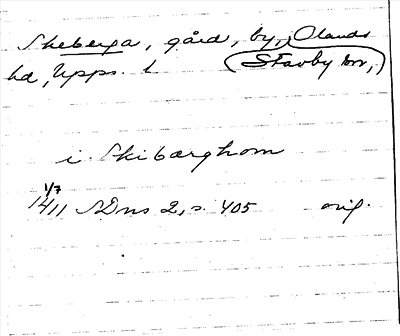 Skeberga, gård, by, Olands
hd, Upps. l (Stavby sn,)
i Skibarghom
1/7
1411 SDns 2, s. 405 orig.